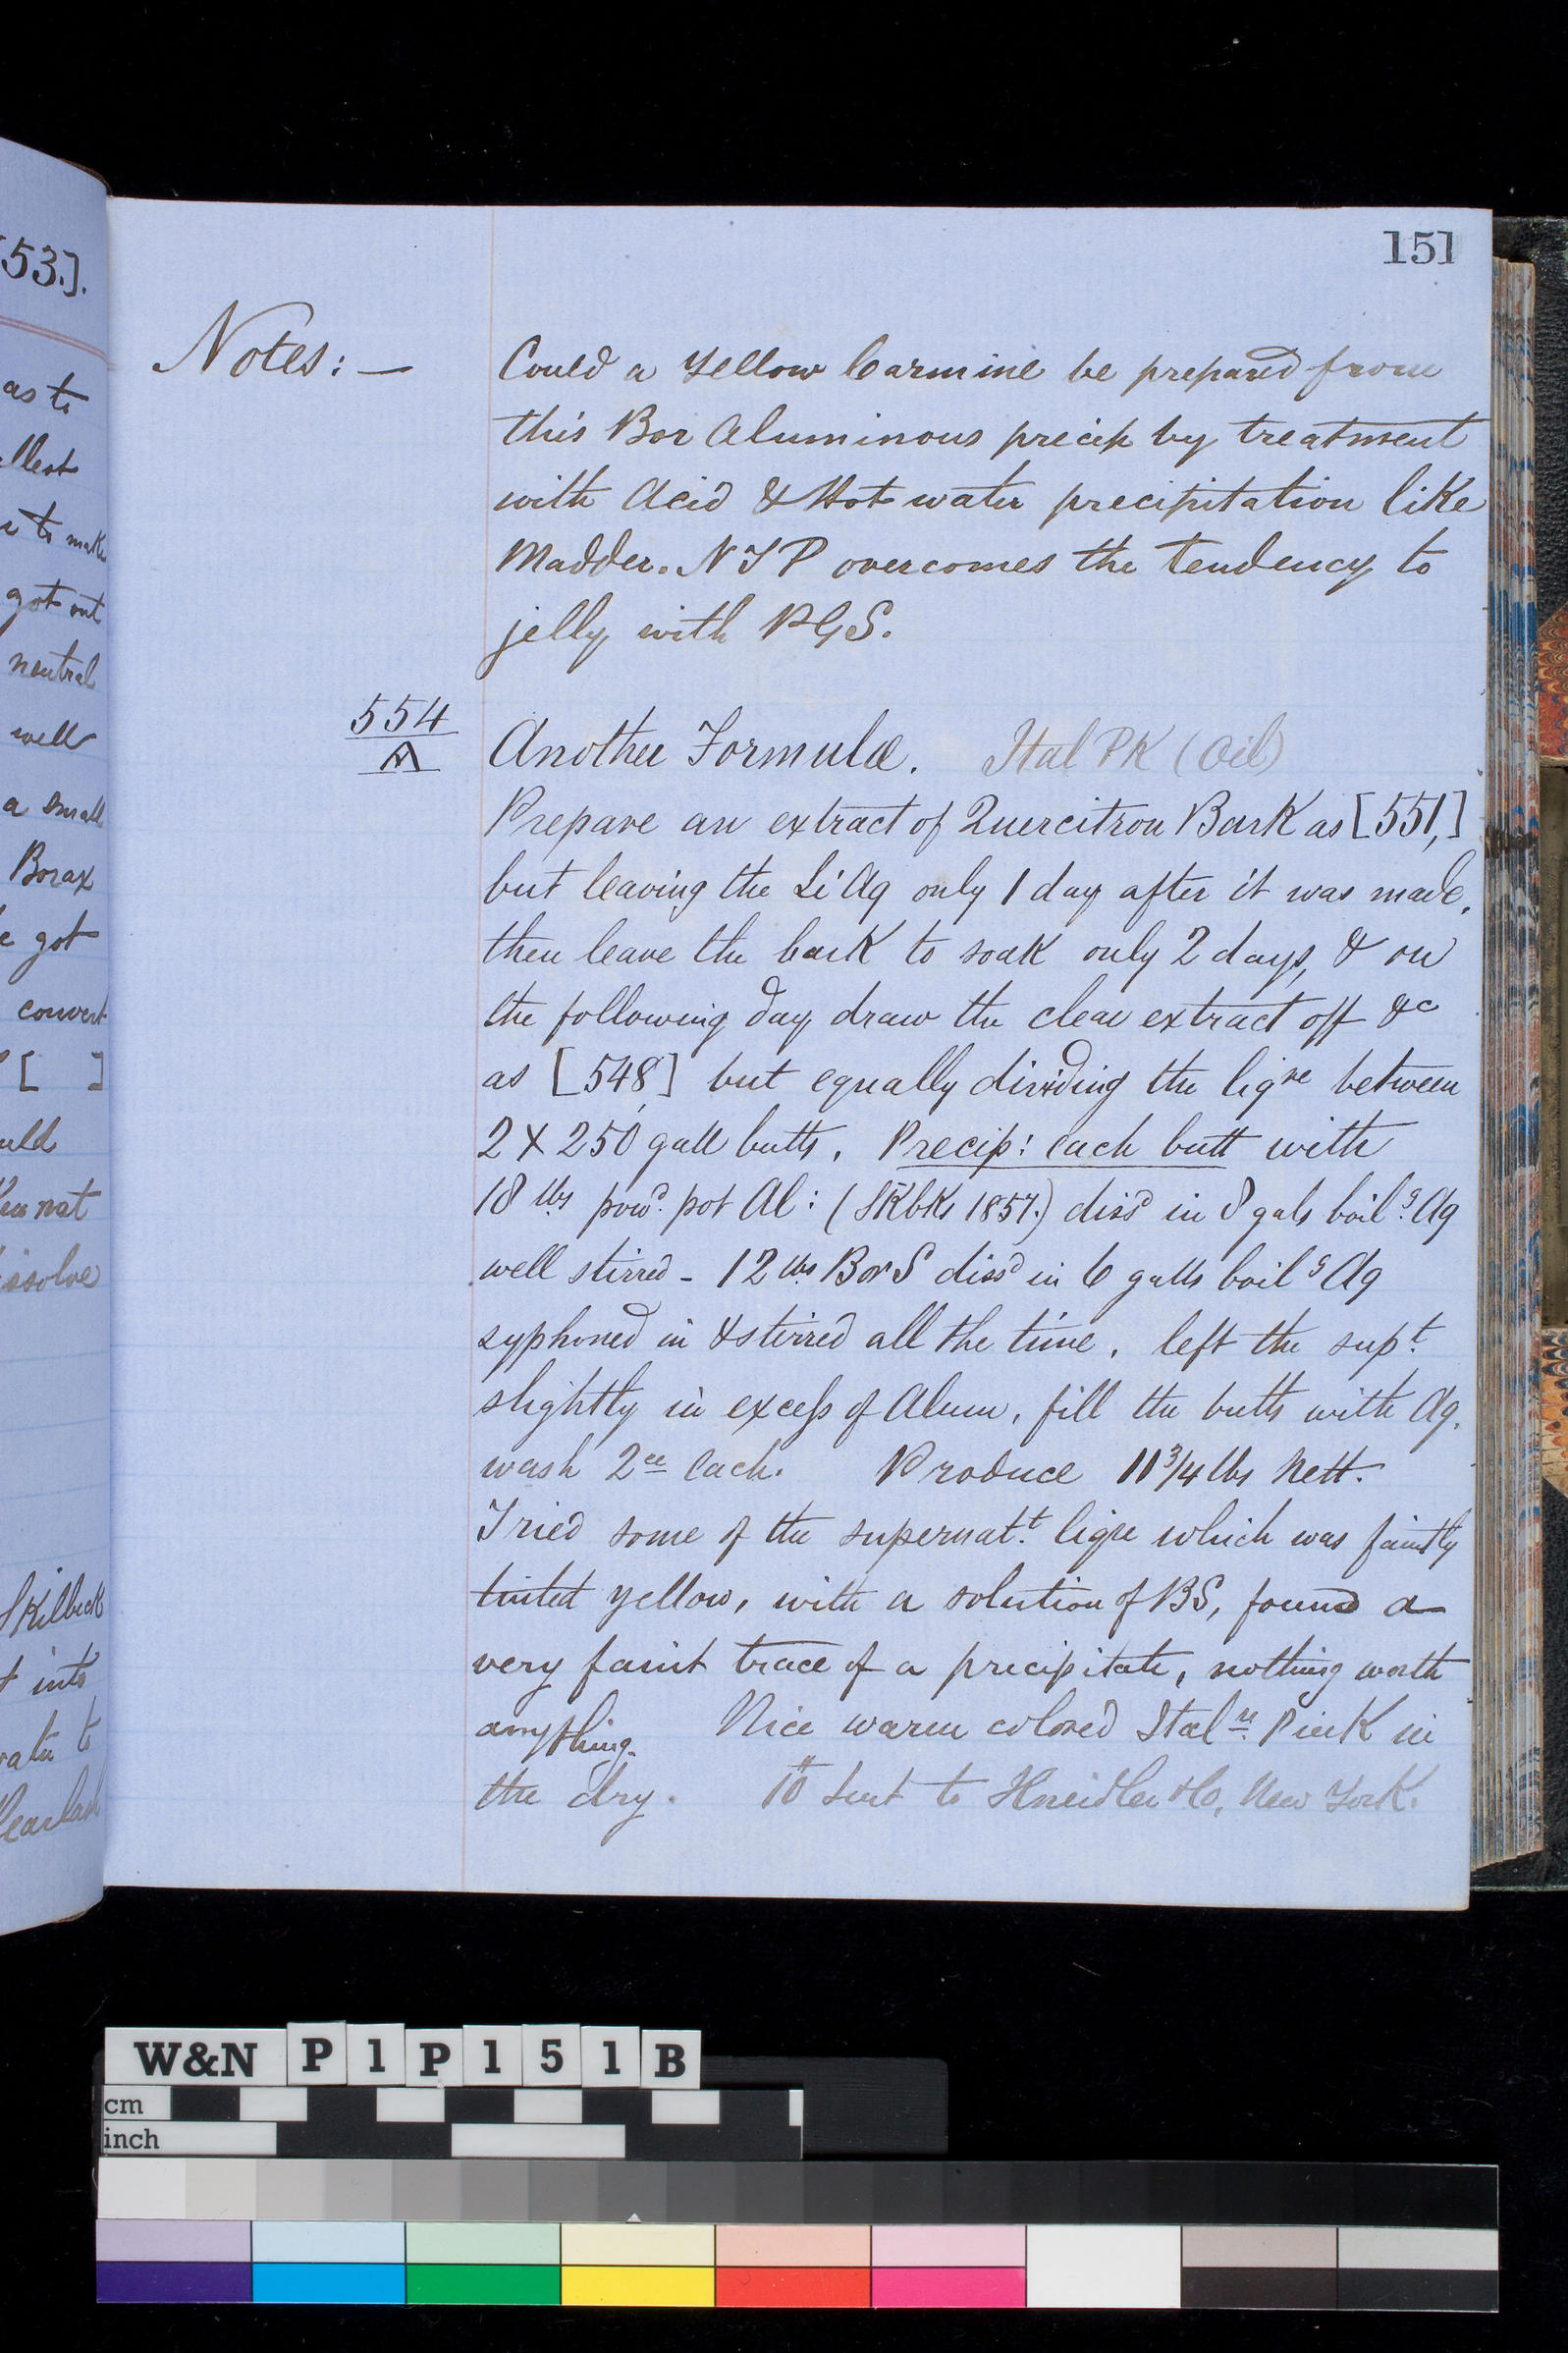 53.].
as to
llest
to make
got out
neutral
well
a small
Borax
got
convert
[ ]
uld
nat
issolve
Skilbeck
t into
to
151
Notes:—
Could a Yellow Carmine be prepared from
this Bor Aluminous precip by treatment
with Acid & Hot water precipitation like
Madder. NTP overcomes the tendency to
jelly with PGS.
554
A
Another Formulæ. Ital PK (Oil)
Prepare an extract of Quercitron Bark as [551,]
but leaving the Li Aq only 1 day after it was made,
then leave the bark to soak only 2 days, & on
the following day draw the clear extract off &c
as [548] but equally dividing the liqre between
2 X 250 gall butts. Precip: each butt with
18 lbs powd. pot Al: (SKbKs 1857.) dissd in 8 gals boilg. Aq
well stirred - 12 lbs Bor S dissd in 6 galls boilg Aq
syphoned in & stirred all the time. left the supt.
slightly in excess of Alum, fill the butts with Aq.
wash 2ce each. Produce 11 3/4 lbs Nett.
Tried some of the supernatt. liqre which was faintly
tinted yellow, with a solution of BS, found a
very faint trace of a precipitate, nothing worth
anything. Nice warm colored Italn. Pink in
the dry. 10 lb sent to & Co, New York.
W&N P 1 P 1 5 1 B
cm
inch